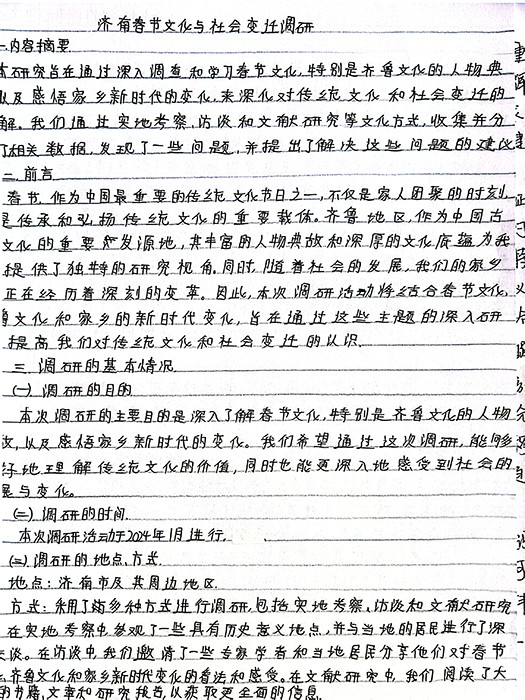 济南春节文化与社会变迁调研
一.内容摘要
本研究旨在通过深入调查和学习春节文化,特别是齐鲁文化的人物典
以及感悟家乡新时代的变化,来深化对传统文化和社会变迁的
解。我们通过实地考察,访谈和文献研究等文化方式,收集并分
了相关数据,发现了一些问题,并提出了解决这些问题的建议
二.前言
春节,作为中国最重要的传统文化节日之一,不仅是家人团聚的时刻
是传承和弘扬传统文化的重要载体。齐鲁地区,作为中国古
文化的重要发源地,其丰富的人物典故和深厚的文化底蕴为我
提供了独特的研究视角。同时,随着社会的发展,我们的家乡
正在经历着深刻的变革。因此,本次调研活动将结合春节文化,
鲁文化和家乡的新时代变化,旨在通过这些主题的深入研
提高我们对传统文化和社会变迁的认识.
三.调研的基本情况
(一)调研的目的
本次调研的主要目的是深入了解春节文化,特别是齐鲁文化的人物
故,以及感悟家乡新时代的变化。我们希望通过这次调研,能够
好地理解传统文化的价值,同时也能更深入地感受到社会的
展与变化。
(二)调研的时间.
本次调研活动于2024年1月进行.
(三)调研的地点、方式
地点:济南市及其周边地区.
方式:采用了多种方式进行调研,包括实地考察、访谈和文献研究
在实地考察中,参观了一些具有历史意义地点,并与当地的居民进行了深
交谈。在访谈中,我们邀请了一些专家学者和当地居民分享他们对春节
齐鲁文化和家乡新时代变化的看法和感受。在文献研究中,我们阅读了大
的书籍,文章和研究报告,以获取更全面的信息.